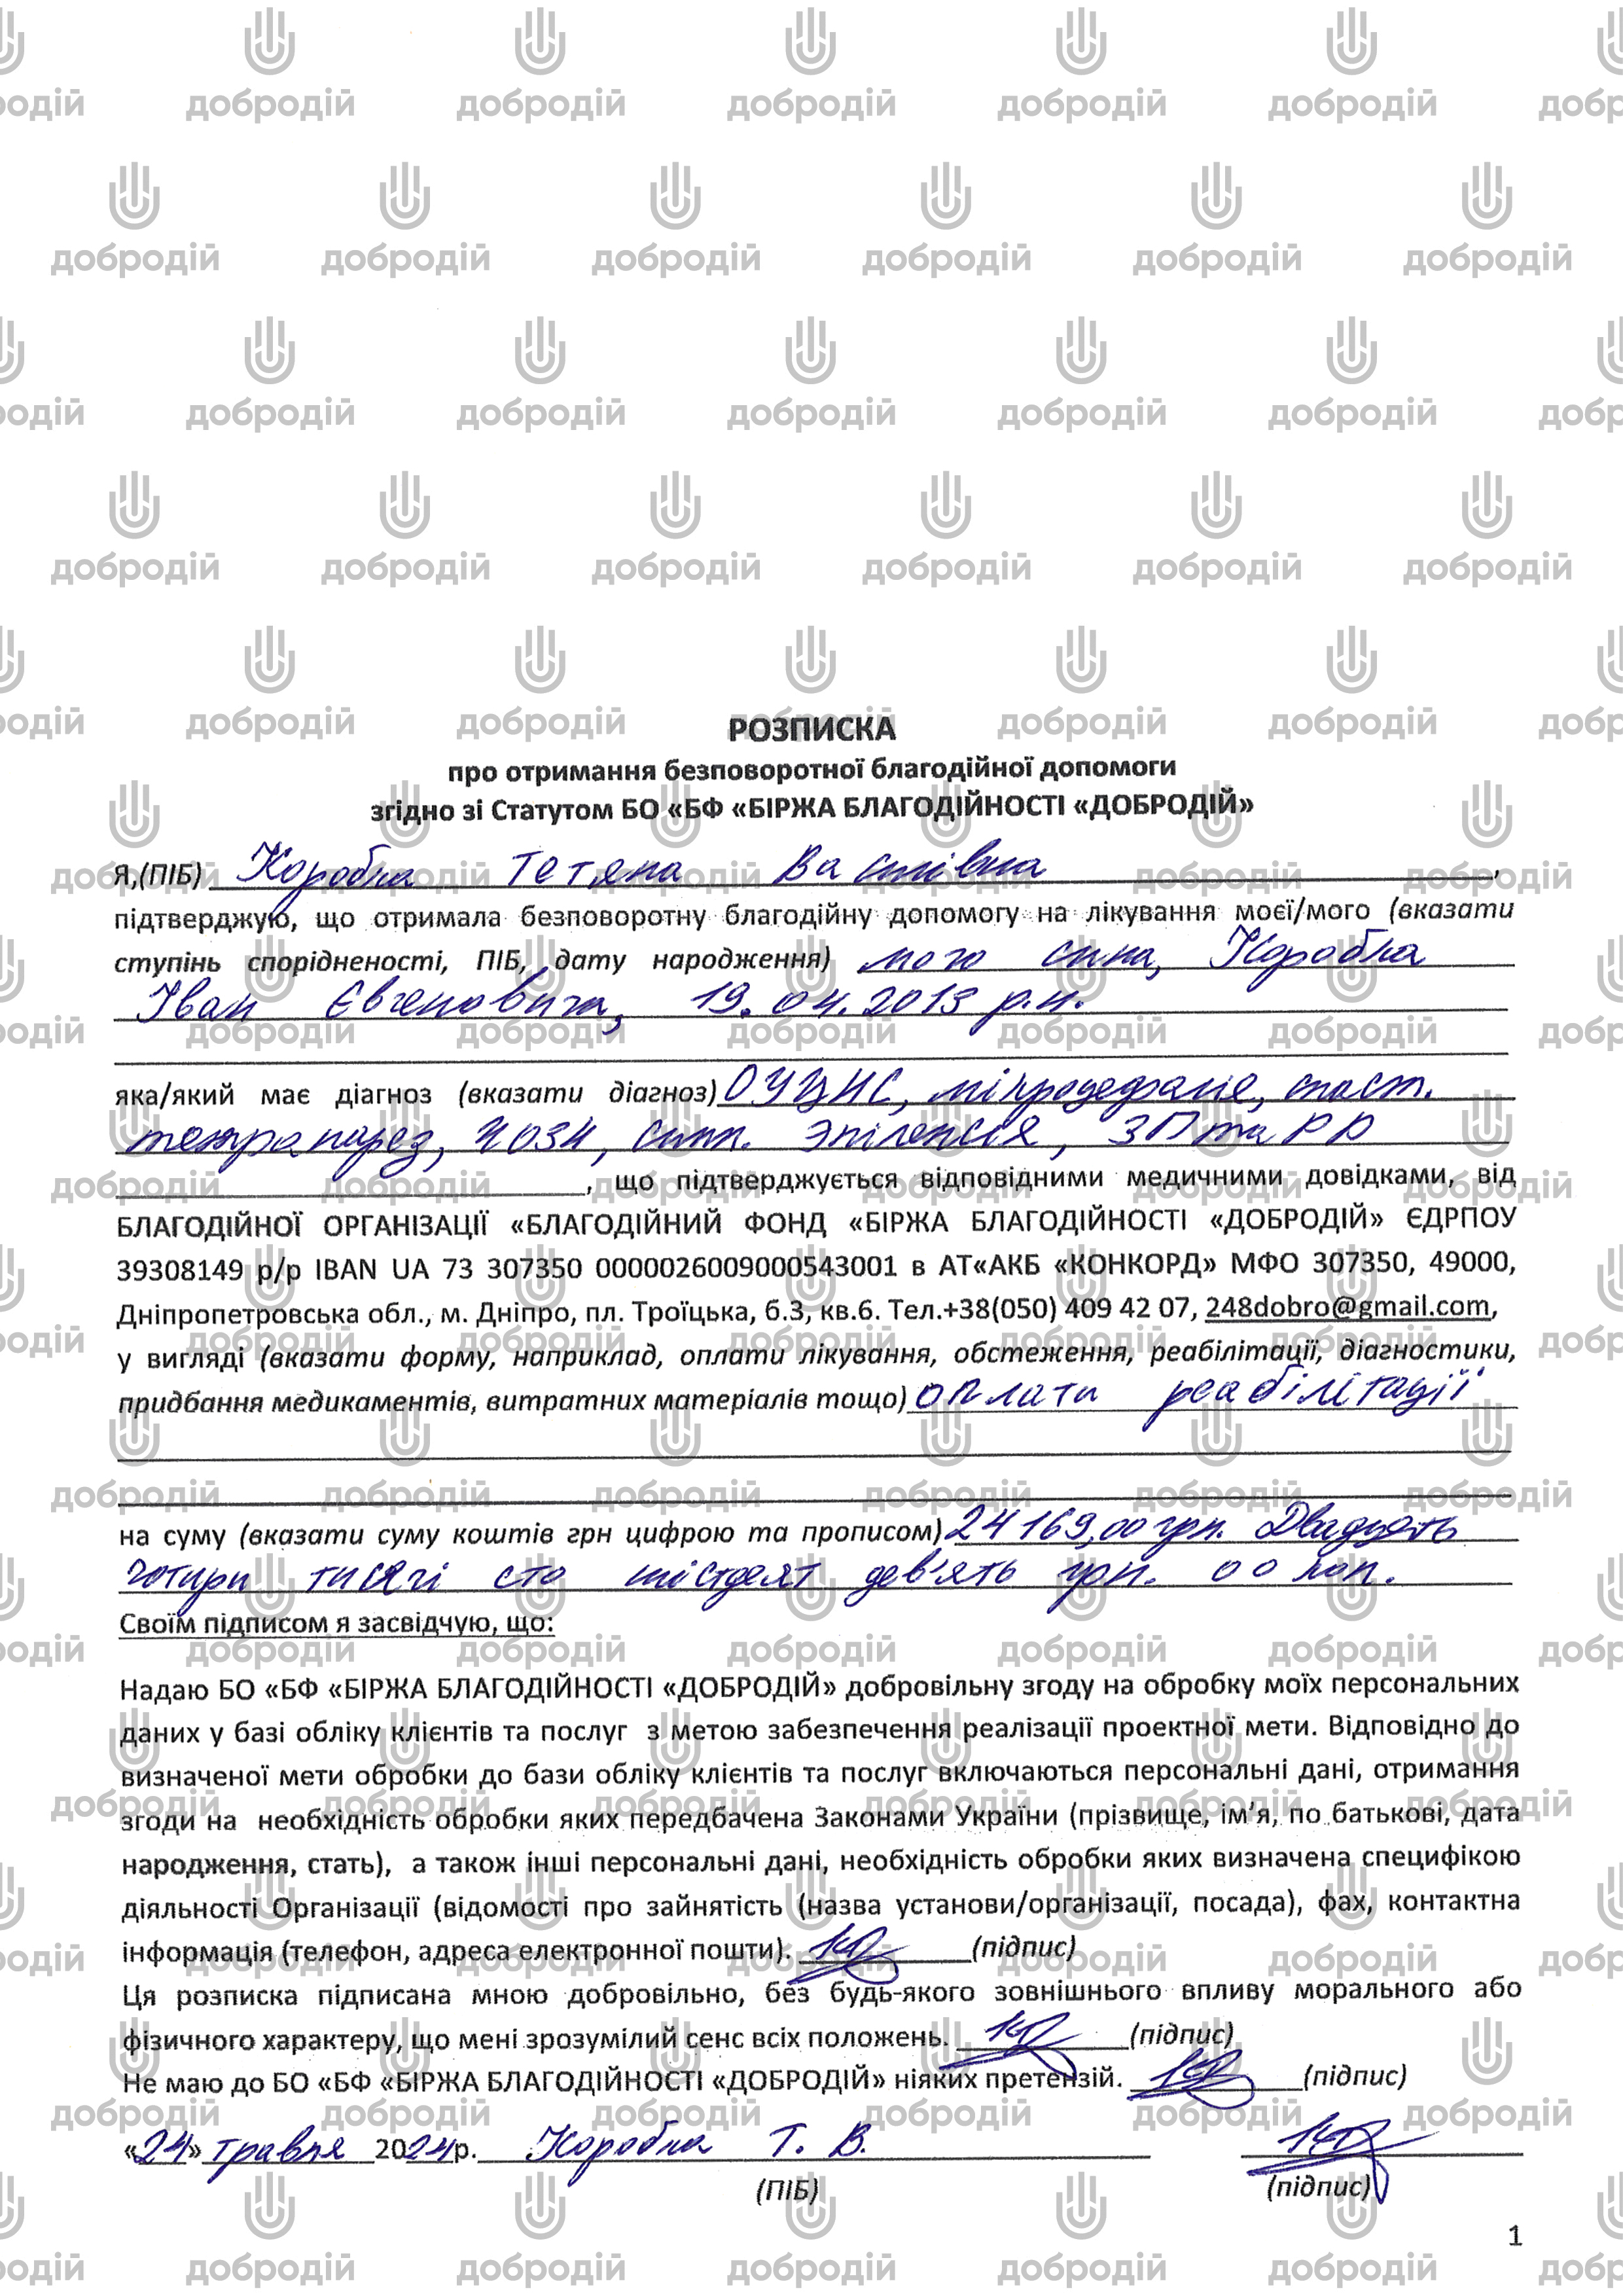 РОЗПИСКА
про отримання безповоротної благодійної допомоги
згідно зі Статутом БО «БФ «БІРЖА БЛАГОДІЙНОСТІ «ДОБРОДІЙ»
Я,(ПІБ) Коробка Тетяна Василівна,
підтверджую, що отримала безповоротну благодійну допомогу на лікування моєї/мого (вказати
ступінь спорідненості, ПІБ, дату народження) мого сина, Коробка
Іван Євгеновича, 19.04.2013 р.н.
яка/який має діагноз (вказати діагноз) ОУЦНС, мікроцефалія, спаст.
тетрапарез, ЧОЗН, симп. эпілепсія, ЗП та РР
, що підтверджується відповідними медичними довідками, від
БЛАГОДІЙНОЇ ОРГАНІЗАЦІЇ «БЛАГОДІЙНИЙ ФОНД «БІРЖА БЛАГОДІЙНОСТІ «ДОБРОДІЙ» ЄДРПОУ
39308149 р/р IBAN UA 73 307350 0000026009000543001 в АТ«АКБ «КОНКОРД» МФО 307350, 49000,
Дніпропетровська обл., м. Дніпро, пл. Троїцька, б.3, кв.6. Тел.+38(050) 409 42 07, 248dobro@gmail.com,
у вигляді (вказати форму, наприклад, оплати лікування, обстеження, реабілітації, діагностики,
придбання медикаментів, витратних матеріалів тощо) оплати реабілітації
на суму (вказати суму коштів грн цифрою та прописом) 24 169,00 грн. Двадцять
чотири тисячі сто шістдесят дев'ять грн. 00 коп.
Своїм підписом я засвідчую, що:
Надаю БО «БФ «БІРЖА БЛАГОДІЙНОСТІ «ДОБРОДІЙ» добровільну згоду на обробку моїх персональних
даних у базі обліку клієнтів та послуг з метою забезпечення реалізації проектної мети. Відповідно до
визначеної мети обробки до бази обліку клієнтів та послуг включаються персональні дані, отримання
згоди на необхідність обробки яких передбачена Законами України (прізвище, ім'я, по батькові, дата
народження, стать), а також інші персональні дані, необхідність обробки яких визначена специфікою
діяльності Організації (відомості про зайнятість (назва установи/організації, посада), фах, контактна
інформація (телефон, адреса електронної пошти). (підпис)
Ця розписка підписана мною добровільно, без будь-якого зовнішнього впливу морального або
фізичного характеру, що мені зрозумілий сенс всіх положень. (підпис)
Не маю до БО «БФ «БІРЖА БЛАГОДІЙНОСТІ «ДОБРОДІЙ» ніяких претензій. (підпис)
«24» травня 2024р. Коробка Т. В.
(ПІБ) (підпис)
1